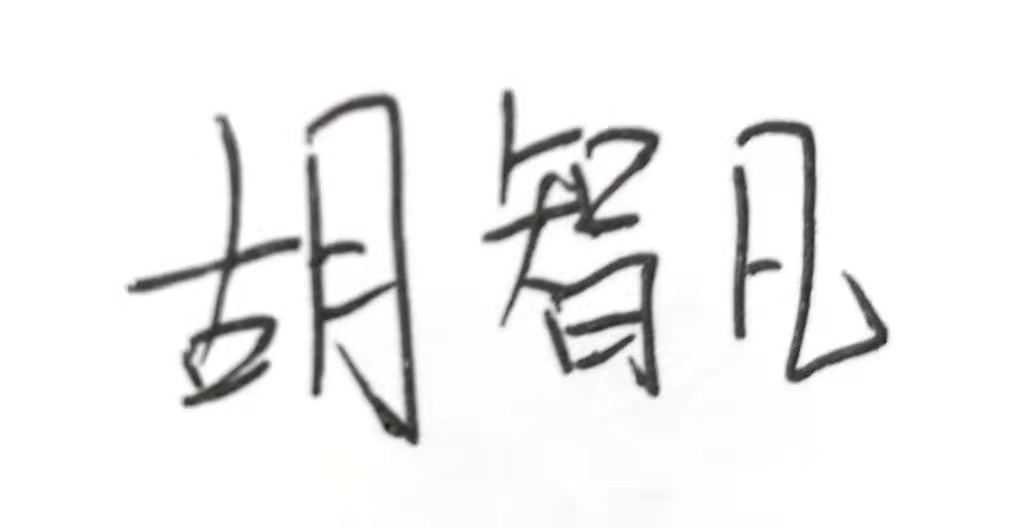 胡智凡